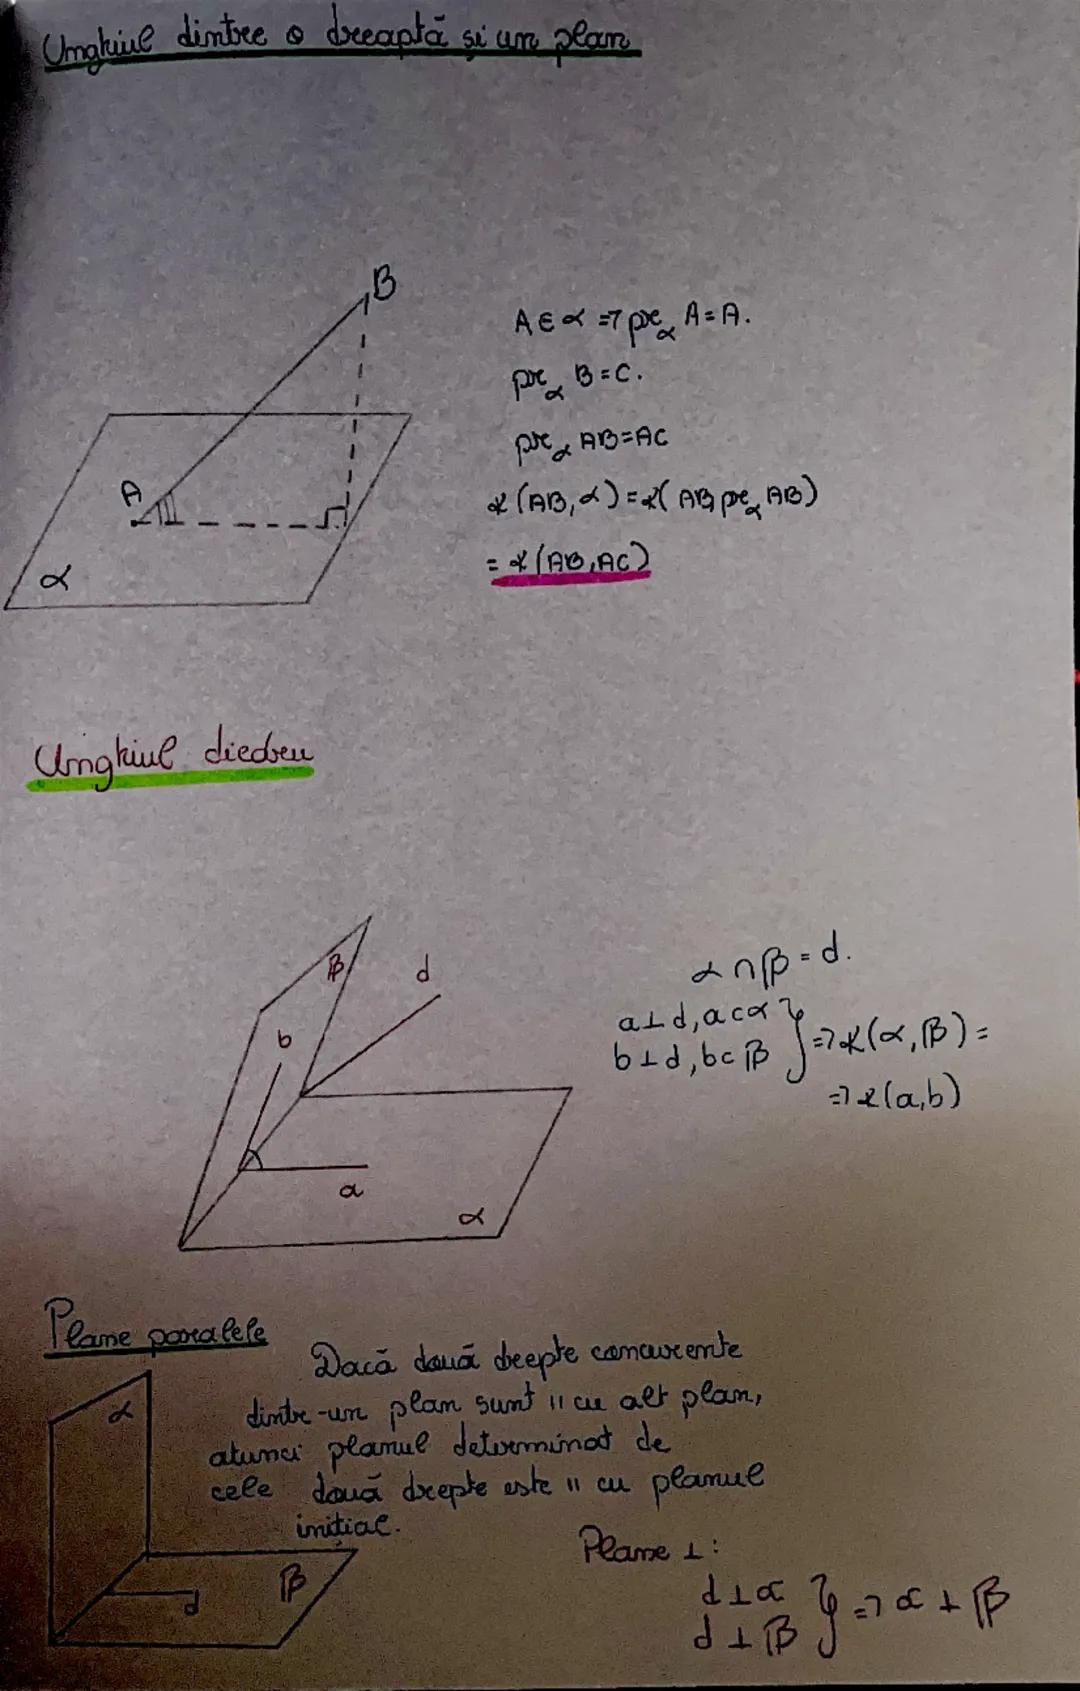 Unghiul dintre o dreaptă și un plan
B
A
α
A ∈ α => pr_α A = A.
pr_α B = C.
pr_α AB = AC
∢(AB, α) = ∢(AB, pr_α AB)
= ∢(AB, AC)
Unghiul diedru
β
d
b
a
α
α ∩ β = d.
a ⊥ d, a ⊂ α
b ⊥ d, b ⊂ β } => ∢(α, β) =
=> ∢(a, b)
Plane paralele
Dacă două drepte concurente
dintr-un plan sunt || cu alt plan,
atunci planul determinat de
cele două drepte este || cu planul
inițial.
α
β
d
Plane ⊥:
d ⊥ α
d ⊥ β } => α ⊥ β